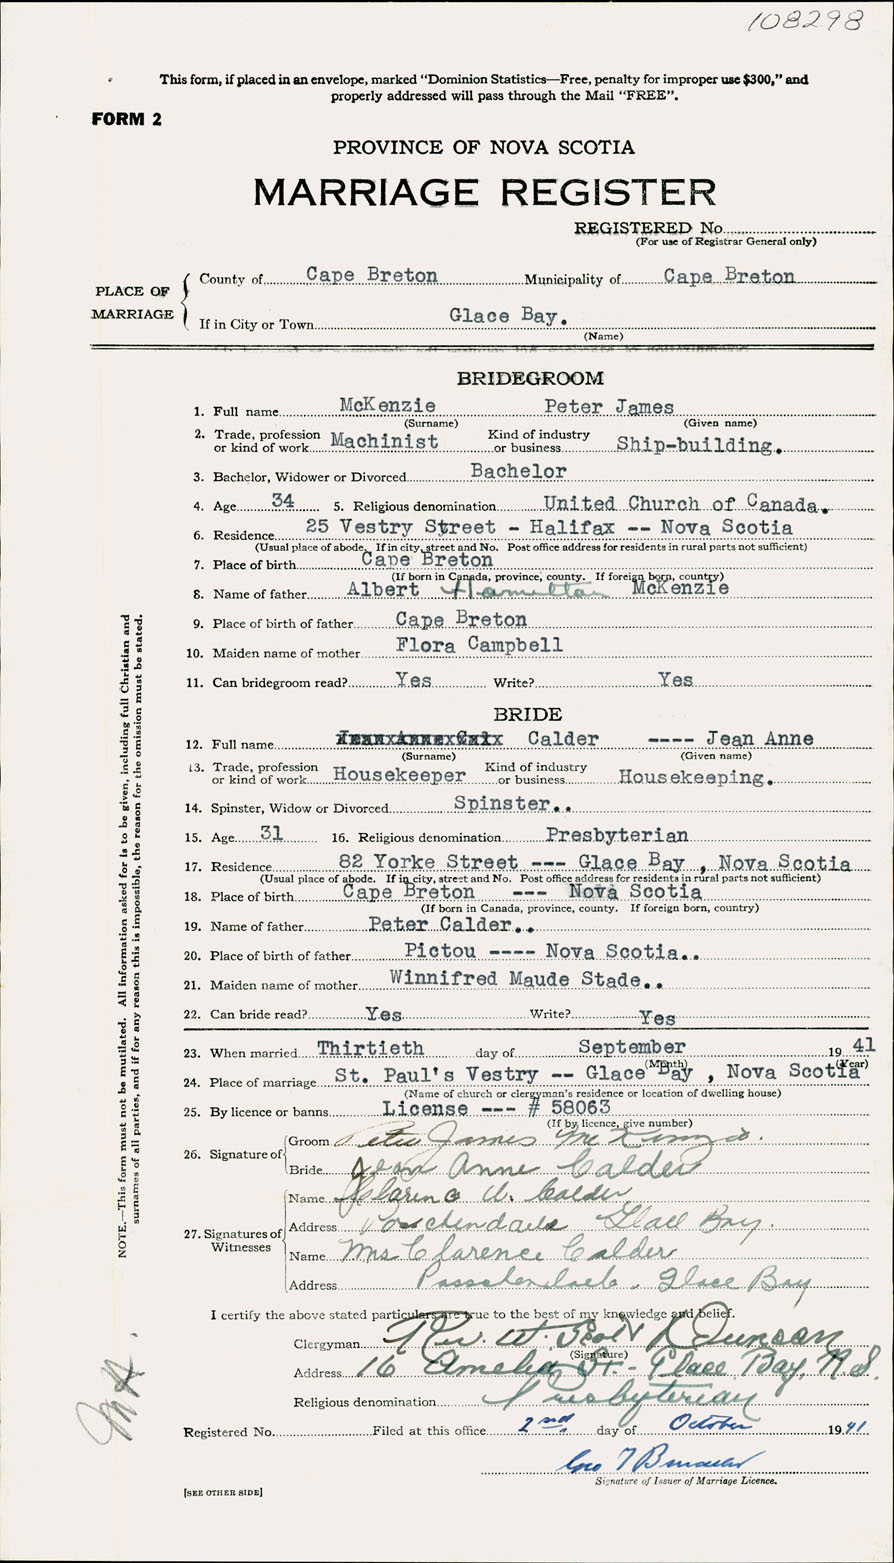 108298
This form, if placed in an envelope, marked “Dominion Statistics—Free, penalty for improper use $300,” and
properly addressed will pass through the Mail “FREE”.
FORM 2
PROVINCE OF NOVA SCOTIA
MARRIAGE REGISTER
REGISTERED No.
(For use of Registrar General only)
PLACE OF MARRIAGE
County of Cape Breton Municipality of Cape Breton
If in City or Town Glace Bay.
(Name)
BRIDEGROOM
1. Full name McKenzie Peter James
(Surname) (Given name)
2. Trade, profession or kind of work Machinist Kind of industry or business Ship-building.
3. Bachelor, Widower or Divorced Bachelor
4. Age 34 5. Religious denomination United Church of Canada.
6. Residence 25 Vestry Street - Halifax -- Nova Scotia
(Usual place of abode. If in city, street and No. Post office address for residents in rural parts not sufficient)
7. Place of birth Cape Breton
(If born in Canada, province, county. If foreign born, country)
8. Name of father Albert Hamilton McKenzie
9. Place of birth of father Cape Breton
10. Maiden name of mother Flora Campbell
11. Can bridegroom read? Yes Write? Yes
BRIDE
12. Full name Calder ---- Jean Anne
(Surname) (Given name)
13. Trade, profession or kind of work Housekeeper Kind of industry or business Housekeeping.
14. Spinster, Widow or Divorced Spinster..
15. Age 31 16. Religious denomination Presbyterian
17. Residence 82 Yorke Street --- Glace Bay , Nova Scotia
(Usual place of abode. If in city, street and No. Post office address for residents in rural parts not sufficient)
18. Place of birth Cape Breton --- Nova Scotia
(If born in Canada, province, county. If foreign born, country)
19. Name of father Peter Calder..
20. Place of birth of father Pictou ---- Nova Scotia..
21. Maiden name of mother Winnifred Maude Stade..
22. Can bride read? Yes Write? Yes
23. When married Thirtieth day of September 19 41
(Month) (Year)
24. Place of marriage St. Paul's Vestry -- Glace Bay , Nova Scotia
(Name of church or clergyman's residence or location of dwelling house)
25. By licence or banns License --- # 58063
(If by licence, give number)
26. Signature of Groom Peter James McKenzie.
Bride Jean Anne Calder
27. Signatures of Witnesses
Name Clarence W. Calder
Address Passchendaele Glace Bay.
Name Mrs Clarence Calder
Address Passchendaele, Glace Bay
I certify the above stated particulars are true to the best of my knowledge and belief.
Clergyman Rev. W. Scott Duncan
(Signature)
Address 16 Amelia St - Glace Bay, N.S.
Religious denomination Presbyterian
Registered No. Filed at this office 2nd day of October 19 41
Geo T
Signature of Issuer of Marriage Licence.
[SEE OTHER SIDE]
NOTE.—This form must not be mutilated. All information asked for is to be given, including full Christian and
surnames of all parties, and if for any reason this is impossible, the reason for the omission must be stated.